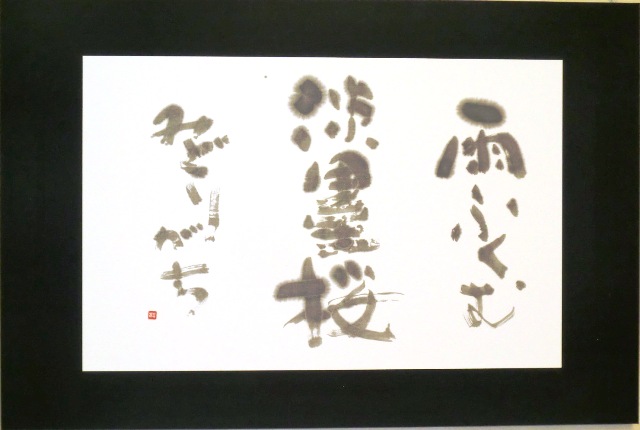 雨ふくむ
淡墨桜
みどりがち